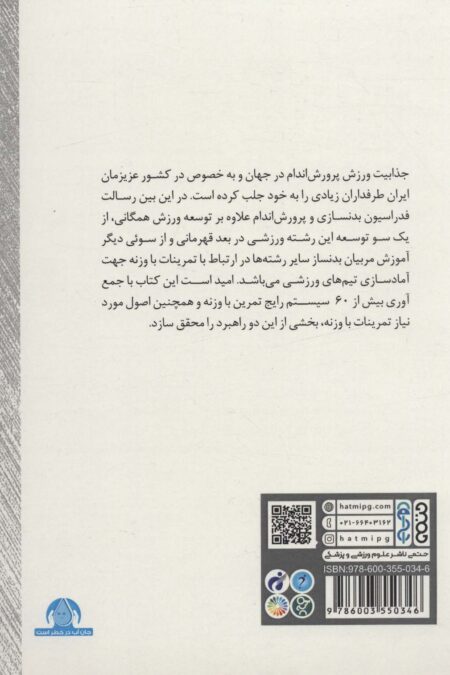 جذابیت ورزش پرورش‌اندام در جهان و به خصوص در کشور عزیزمان
ایران طرفداران زیادی را به خود جلب کرده است. در این بین رسالت
فدراسیون بدنسازی و پرورش‌اندام علاوه بر توسعه ورزش همگانی، از
یک سو توسعه این رشته ورزشی در بعد قهرمانی و از سوئی دیگر
آموزش مربیان بدنساز سایر رشته‌ها در ارتباط با تمرینات با وزنه جهت
آمادسازی تیم‌های ورزشی می‌باشد. امید است این کتاب با جمع
آوری بیش از ۶۰ سیستم رایج تمرین با وزنه و همچنین اصول مورد
نیاز تمرینات با وزنه، بخشی از این دو راهبرد را محقق سازد.
hatmipg.com
۰۲۱-۶۶۴۰۳۱۶۲
hatmipg
حتمی
حتمی ناشر علوم ورزشی و پزشکی
ISBN:978-600-355-034-6
9 786003 550346
جان آب در خطر است